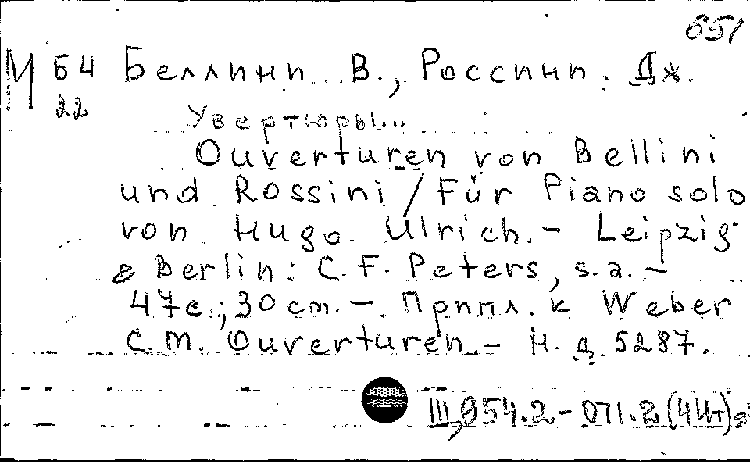 651
М 64 Беллини В., Россини Дж.
22 Увертюры..
Ouverturen von Bellini
und Rossini / Für Piano solo
von Hugo Ulrich. – Leipzig
& Berlin: C. F. Peters, s. a. –
47 с.; 30 cm. – Припл. к Weber
C. M. Ouverturen – Н. д. 5287.
III, 954.2 – 011.2 (4Ит)